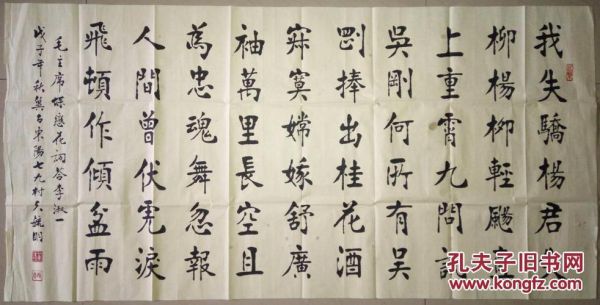 我失驕楊君失
柳楊柳輕颺直
上重霄九問訊
吳剛何所有吳
剛捧出桂花酒
寂寞嫦娥舒廣
袖萬里長空且
為忠魂舞忽報
人間曾伏虎淚
飛頓作傾盆雨
毛主席蝶戀花詞答李淑一
戊子年秋冀邑東陽七九村夫毓明
孔夫子旧书网
www.kongfz.com